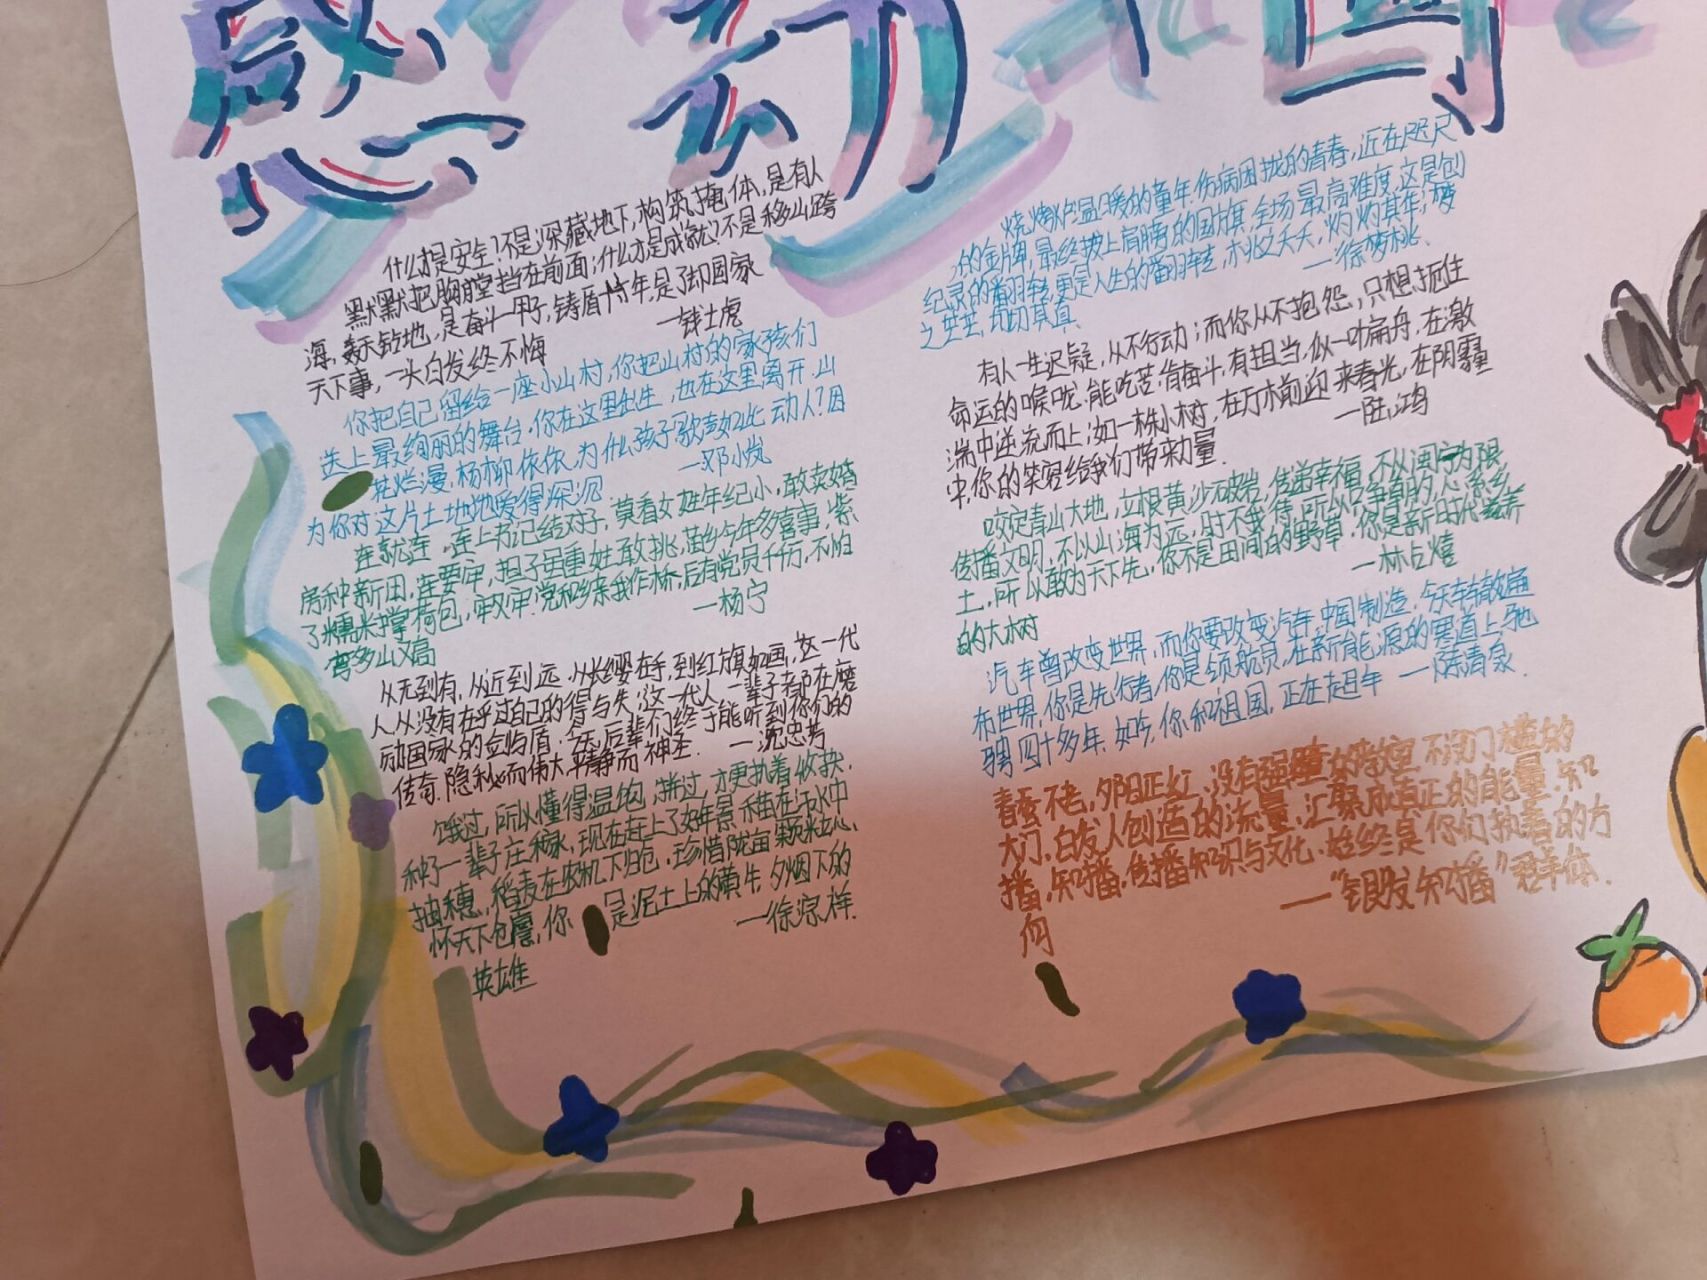 感动中国
什么才是安全?不是深藏地下,构筑掩体,是有人
默默把胸膛挡在前面;什么才是成就?不是移山跨
海,轰天钻地,是奋斗一甲子,铸盾六十年,是了却国家
天下事,一头白发终不悔
—钱七虎
你把自己留给一座小山村,你把山村的家孩们
送上最绚丽的舞台,你在这里出生,也在这里离开,山
花烂漫,杨柳依依,为什么孩子歌声如此动人?因
为你对这片土地地爱得深沉
—邓小岚
连就连,连上书记结对子,莫看女娃年纪小,敢卖婚
房种新田,连要牢,担子虽重娃敢挑,苗乡今年多喜事,紫
了糯米掌荷包,牢又牢,党和乡亲我作桥,后有党员千万,不怕
弯多山又高
—杨宁
从无到有,从近到远,从长缨在手,到红旗如画,这一代
人从没有在乎过自己的得与失,这一代人一辈子都在磨
砺国家的剑与盾,今天,后辈们终于能听到你们的
传奇,隐秘而伟大,平静而神圣.
—沈忠芳
饿过,所以懂得温饱,拼过,才更执着收获.
种了一辈子庄稼,现在赶上了好年景,禾苗在汗水中
抽穗,稻麦在农机下归仓,珍惜陇亩颗米粒心,
怀天下仓廪,你 是泥土上的黄牛,夕烟下的
英雄
—徐淙祥.
烧烤炉温暖的童年,伤病困扰的青春,近在咫尺
的金牌,最终披上肩膀的国旗,全场最高难度,这是创
纪录的翻转,更是人生的翻转,桃之夭夭,灼灼其华;梦
之芒芒,切切其真
—徐梦桃.
有人一生迟疑,从不行动;而你从不抱怨,只想扼住
命运的喉咙,能吃苦,肯奋斗,有担当,似一叶扁舟,在激
湍中逆流而上;如一株小树,在万木前迎来春光,在阴霾
中,你的笑容给我们带来力量.
—陆鸿
咬定青山大地,立根黄沙破岩,传递幸福,不以闽宁为限
传播文明,不以山海为远,时不我待,所以只争朝夕,心系乡
土,所以敢为天下先,你不是田间的野草,你是新时代滋养
的大树
—林占熺
汽车曾改变世界,而你要改变汽车,中国制造,今天车辙遍
布世界,你是先行者,你是领航员,在新能源的赛道上驰
骋四十多年,如今,你和祖国,正在超车
—陈清泉.
青春不老,夕阳正红,没有强瞳的教室,不设门槛的
大门,白发人创造的流量,汇聚成真正的能量.知
播,知播,传播知识与文化,始终是你们执着的方
向
—“银发知播”群体.